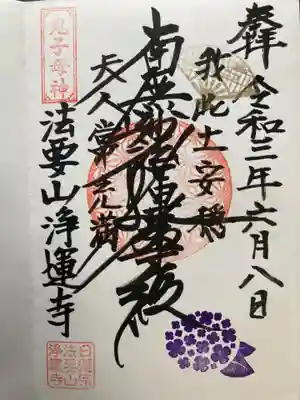 奉拝
令和二年六月八日
我此土安穏
南無妙法蓮華経
天人常充満
鬼子母神
法要山浄運寺
日蓮宗
法要山
浄運寺